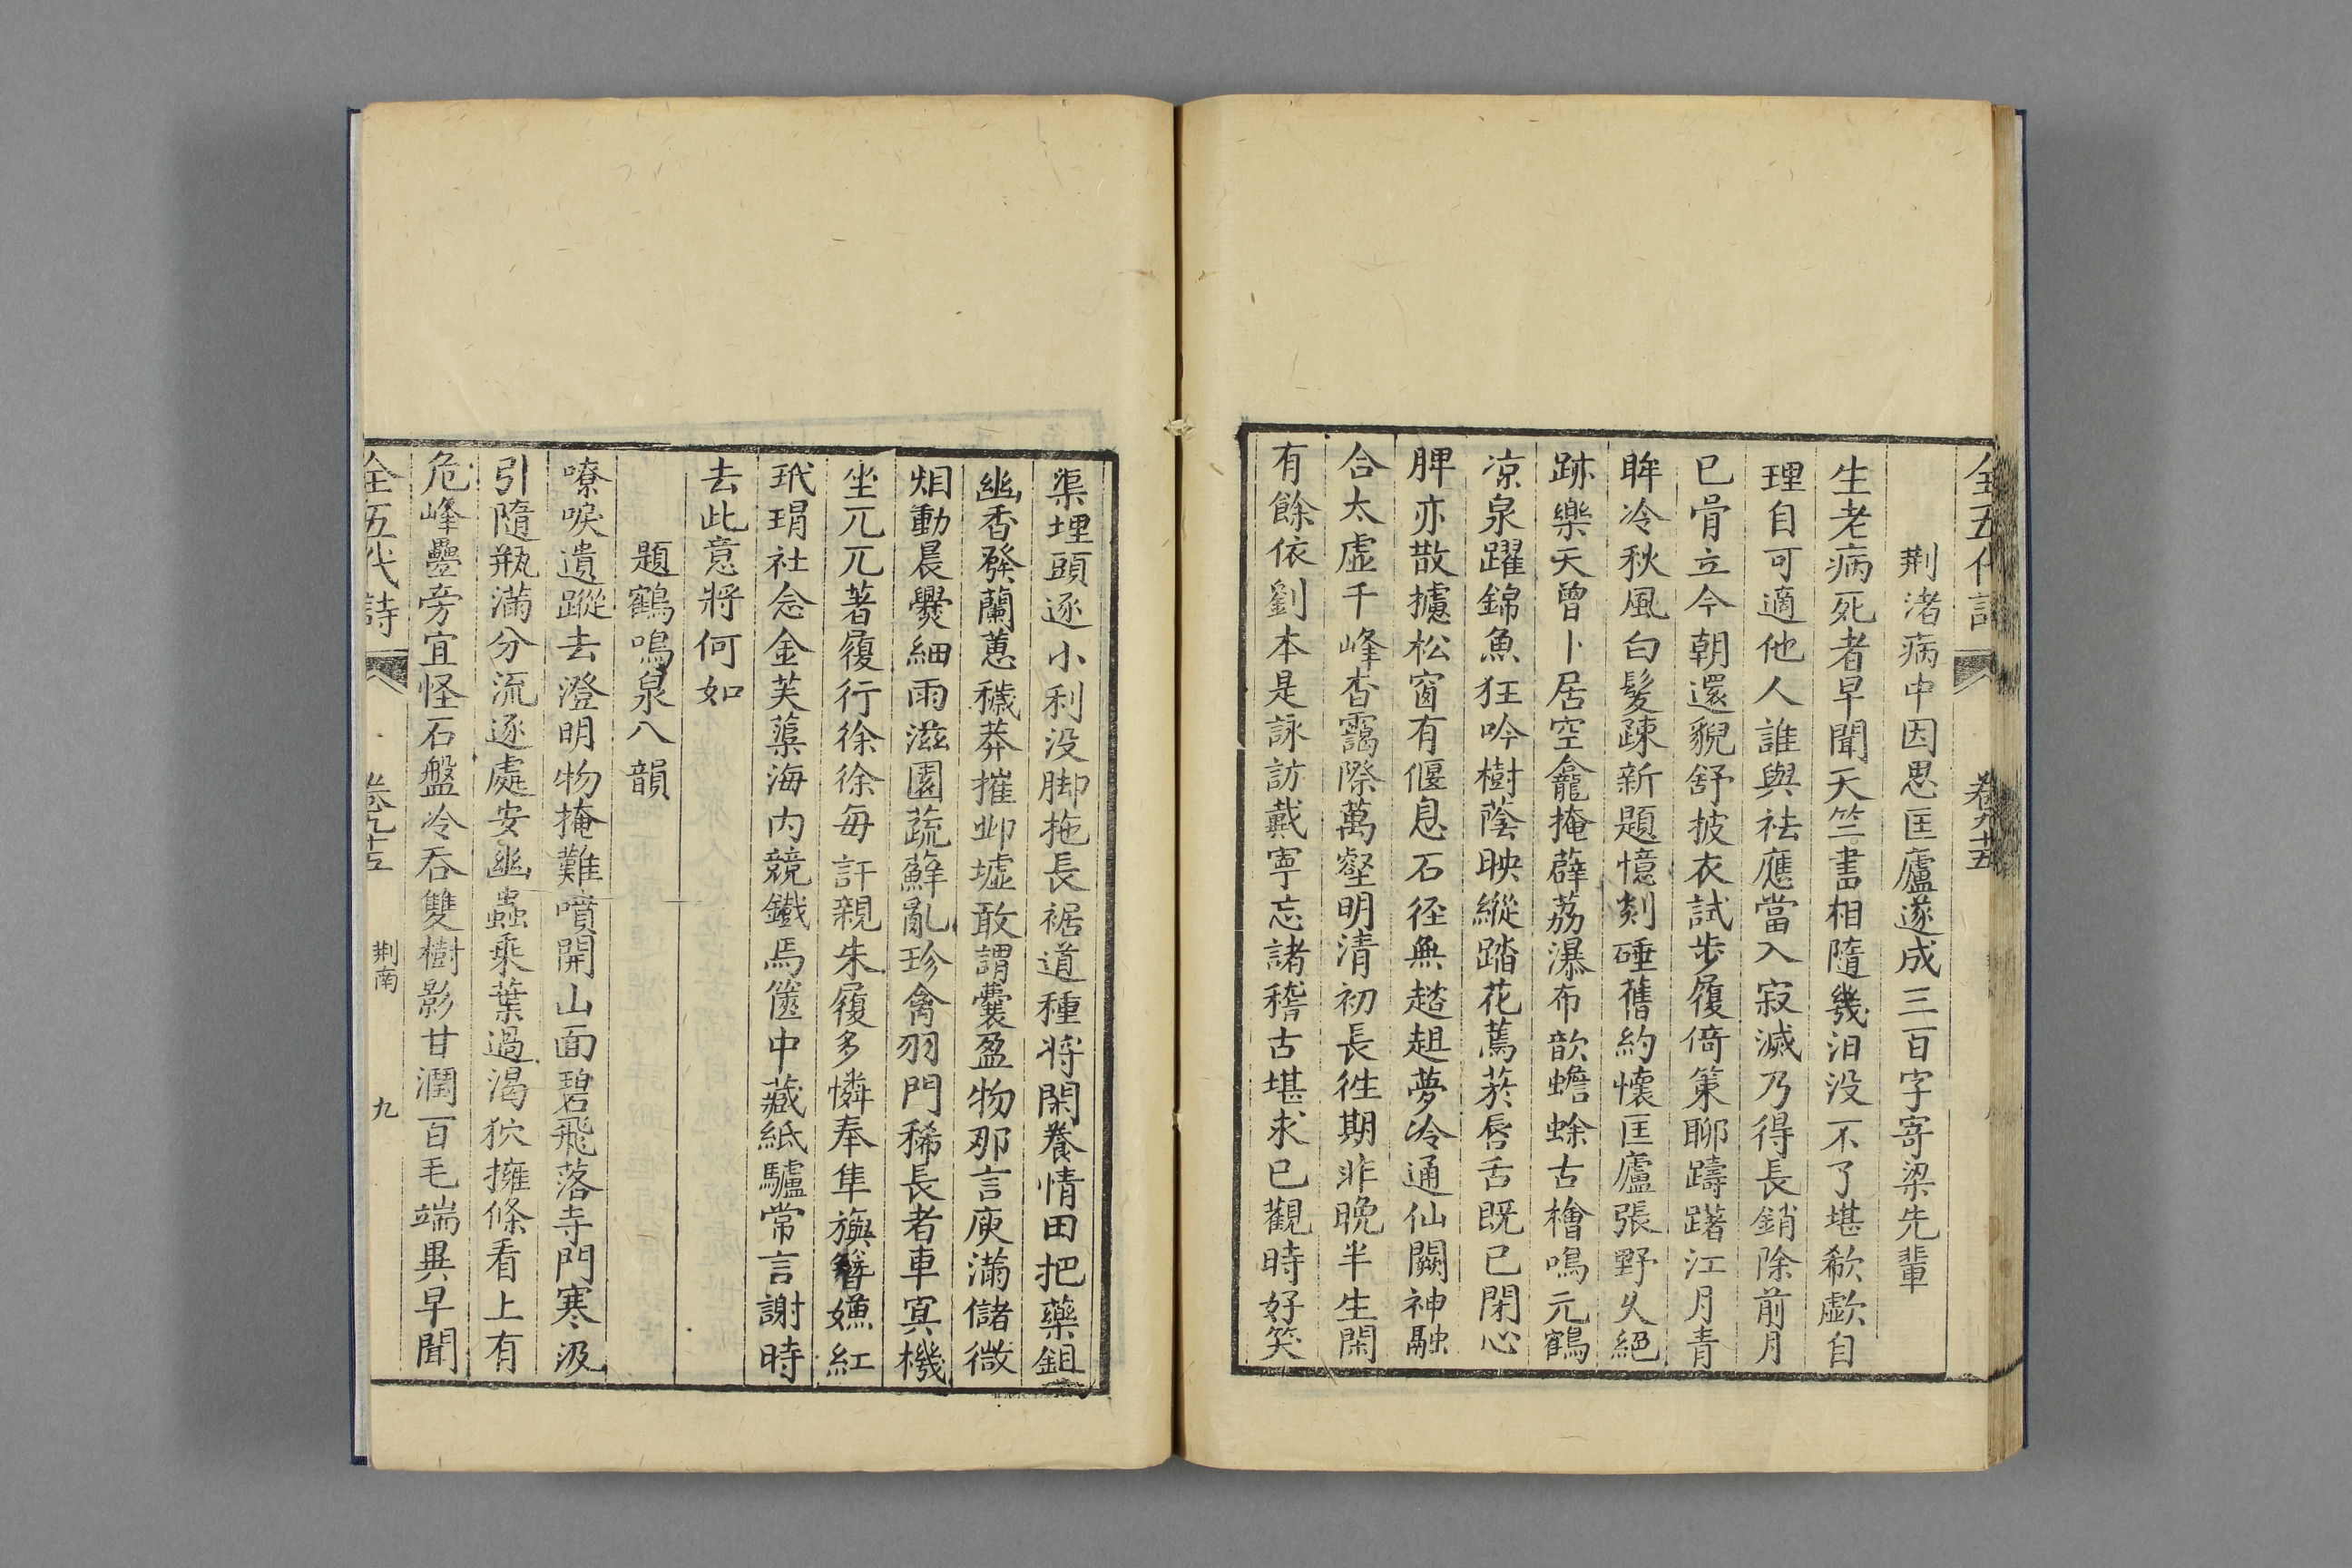 全五代詩
卷九十五
荆渚病中因思匡廬遂成三百字寄梁先輩
生老病死者早聞天竺書相隨幾汨没不了堪欷歔自
理自可適他人誰與袪應當入寂滅乃得長銷除前月
已骨立今朝還貌舒披衣試步履倚策聊躊躇江月青
眸冷秋風白髮踈新題憶剡硾舊約懷匡廬張野久絕
跡樂天曾卜居空龕掩薜荔瀑布歕蟾蜍古檜鳴元鶴
凉泉躍錦魚狂吟樹蔭映縱踏花蔫菸唇舌既已閑心
脾亦散攄松窗有偃息石徑無趑趄夢冷通仙闕神融
合太虛千峰杳靄際萬壑明清初長徃期非晚半生閑
有餘依劉本是詠訪戴寧忘諸稽古堪求已觀時好笑
渠埋頭逐小利没脚拖長裾道種將閑養情田把藥鉏
幽香發蘭蕙穢莽摧丱墟敢謂囊盈物那言庾滿儲微
烟動晨爨細雨滋園蔬蘚亂珍禽羽門稀長者車冥機
坐兀兀著履行徐徐每訝親朱履多憐奉隼旟簪嫌紅
玳瑁社念金芙蕖海内競鐵馬篋中藏紙驢常言謝時
去此意將何如
題鶴鳴泉八韻
嘹唳遺蹤去澄明物掩難噴開山面碧飛落寺門寒汲
引隨瓶滿分流逐處安幽蟲乘葉過渴狖擁條看上有
危峰疊旁宜怪石盤冷吞雙樹影甘潤百毛端異早聞
全五代詩
卷九十五
荆南
九